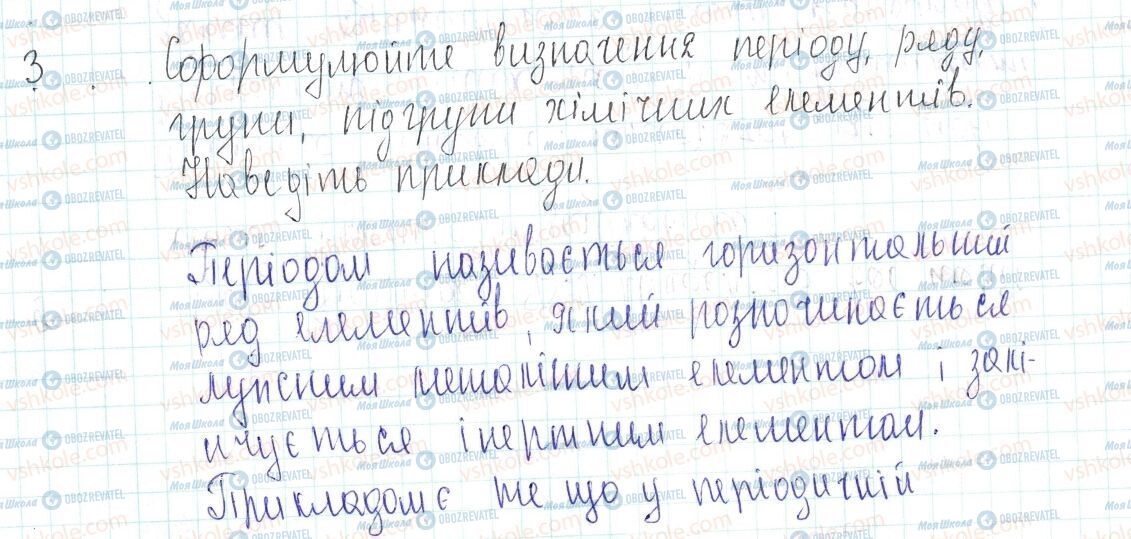 3. Сформулюйте визначення періоду, ряду,
групи, підгрупи хімічних елементів.
Наведіть приклади.
Періодом називається горизонтальний
ряд елементів, який розпочинається
лужним металічним елементом і закі-
нчується інертним елементом.
Прикладом є те що у періодичній